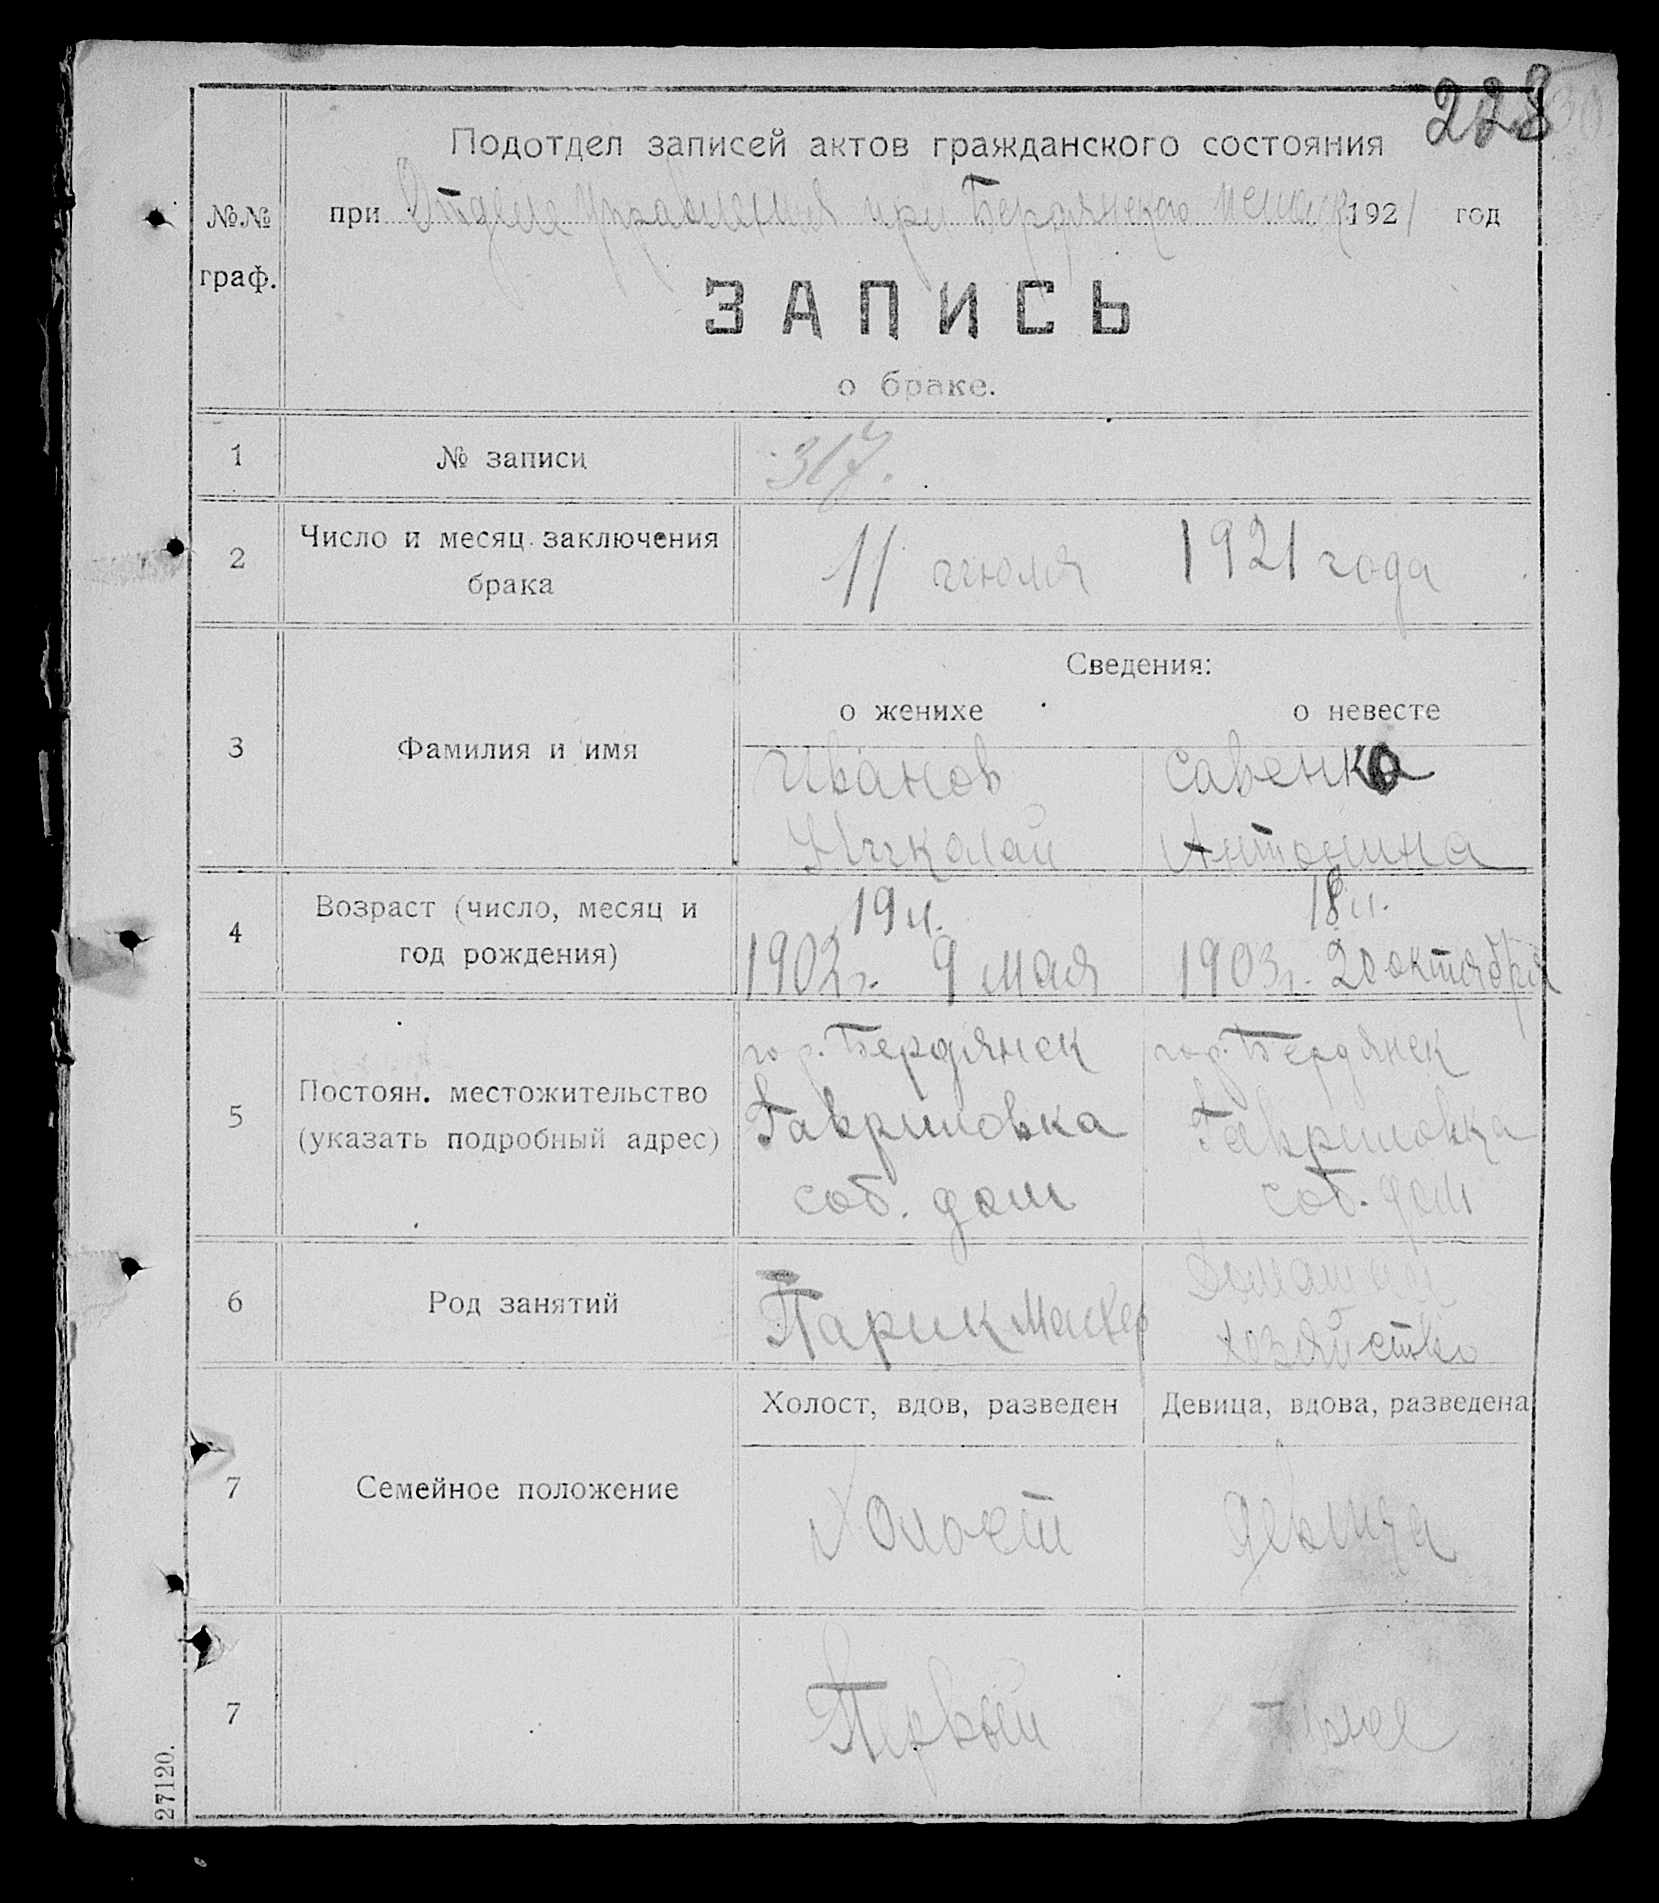 228
Подотдел записей актов гражданского состояния
при Отделе Управления при Бердянском 1921 год
№№
граф.
ЗАПИСЬ
о браке.
1 № записи 317.
2 Число и месяц заключения брака 11 июля 1921 года
Сведения:
о женихе о невесте
3 Фамилия и имя
Иванов Савенко
Николай Антонина
4 Возраст (число, месяц и год рождения)
19 л. 18 л.
1902 г. 9 мая 1903 г. 20 октября
5 Постоян. местожительство (указать подробный адрес)
гор. Бердянск гор. Бердянск
Гавриловка Гавриловка
соб. дом соб. дом
6 Род занятий
Парикмахер Домашнее
хозяйство
Холост, вдов, разведен Девица, вдова, разведена
7 Семейное положение
Холост девица
7 Первый тоже
27120.